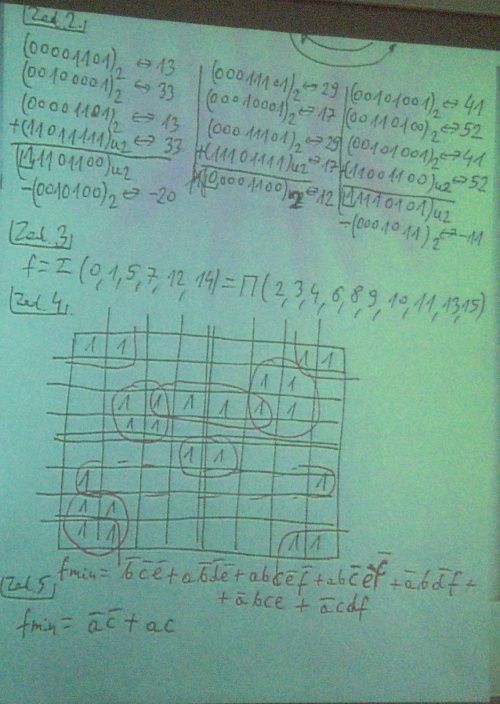 Zad.2.
(00001101)₂ ⇔ 13
(00100001)₂ ⇔ 33
(00001101)₂ ⇔ 13
+(11011111)U2 ⇔ 33
(11101100)U2
-(0010100)₂ ⇔ -20
(00011101)₂ ⇔ 29
(00010001)₂ ⇔ 17
(00011101)₂ ⇔ 29
+(11101111)U2 ⇔ 17
(00001100)U2 ⇔ 12
(00101001)₂ ⇔ 41
(00110100)₂ ⇔ 52
(00101001)₂ ⇔ 41
+(11001100)U2 ⇔ 52
(11110101)U2
-(0001011)₂ ⇔ -11
Zad.3
f = Σ (0,1,5,7,12,14) = Π (2,3,4,6,8,9,10,11,13,15)
Zad.4.
1 1 1 1
1 1
1 1 1 1 1 1
1 1
1 1
1 1
1 1
1 1 1 1
fmin = b̄c̄ē + ab̄d̄ē + abc̄ēf̄ + abc̄ef̄ + ābd̄f +
+ ābce + ācdf
Zad.5
fmin = āc̄ + ac